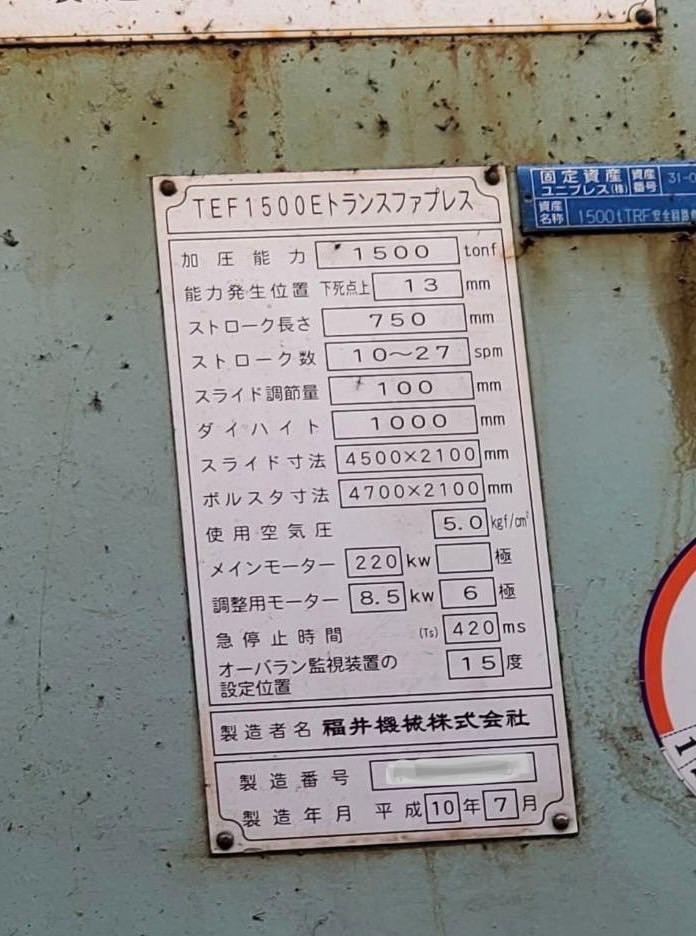 TEF1500Eトランスファプレス
固定資産 資産番号 31-0
ユニプレス(株)
資産名称 1500tTRF
加圧能力 1500 tonf
能力発生位置 下死点上 13 mm
ストローク長さ 750 mm
ストローク数 10～27 spm
スライド調節量 100 mm
ダイハイト 1000 mm
スライド寸法 4500×2100 mm
ボルスタ寸法 4700×2100 mm
使用空気圧 5.0 kgf/cm²
メインモーター 220 kw 極
調整用モーター 8.5 kw 6 極
急停止時間 (Ts) 420 ms
オーバラン監視装置の
設定位置 15 度
製造者名 福井機械株式会社
製造番号
製造年月 平成 10 年 7 月